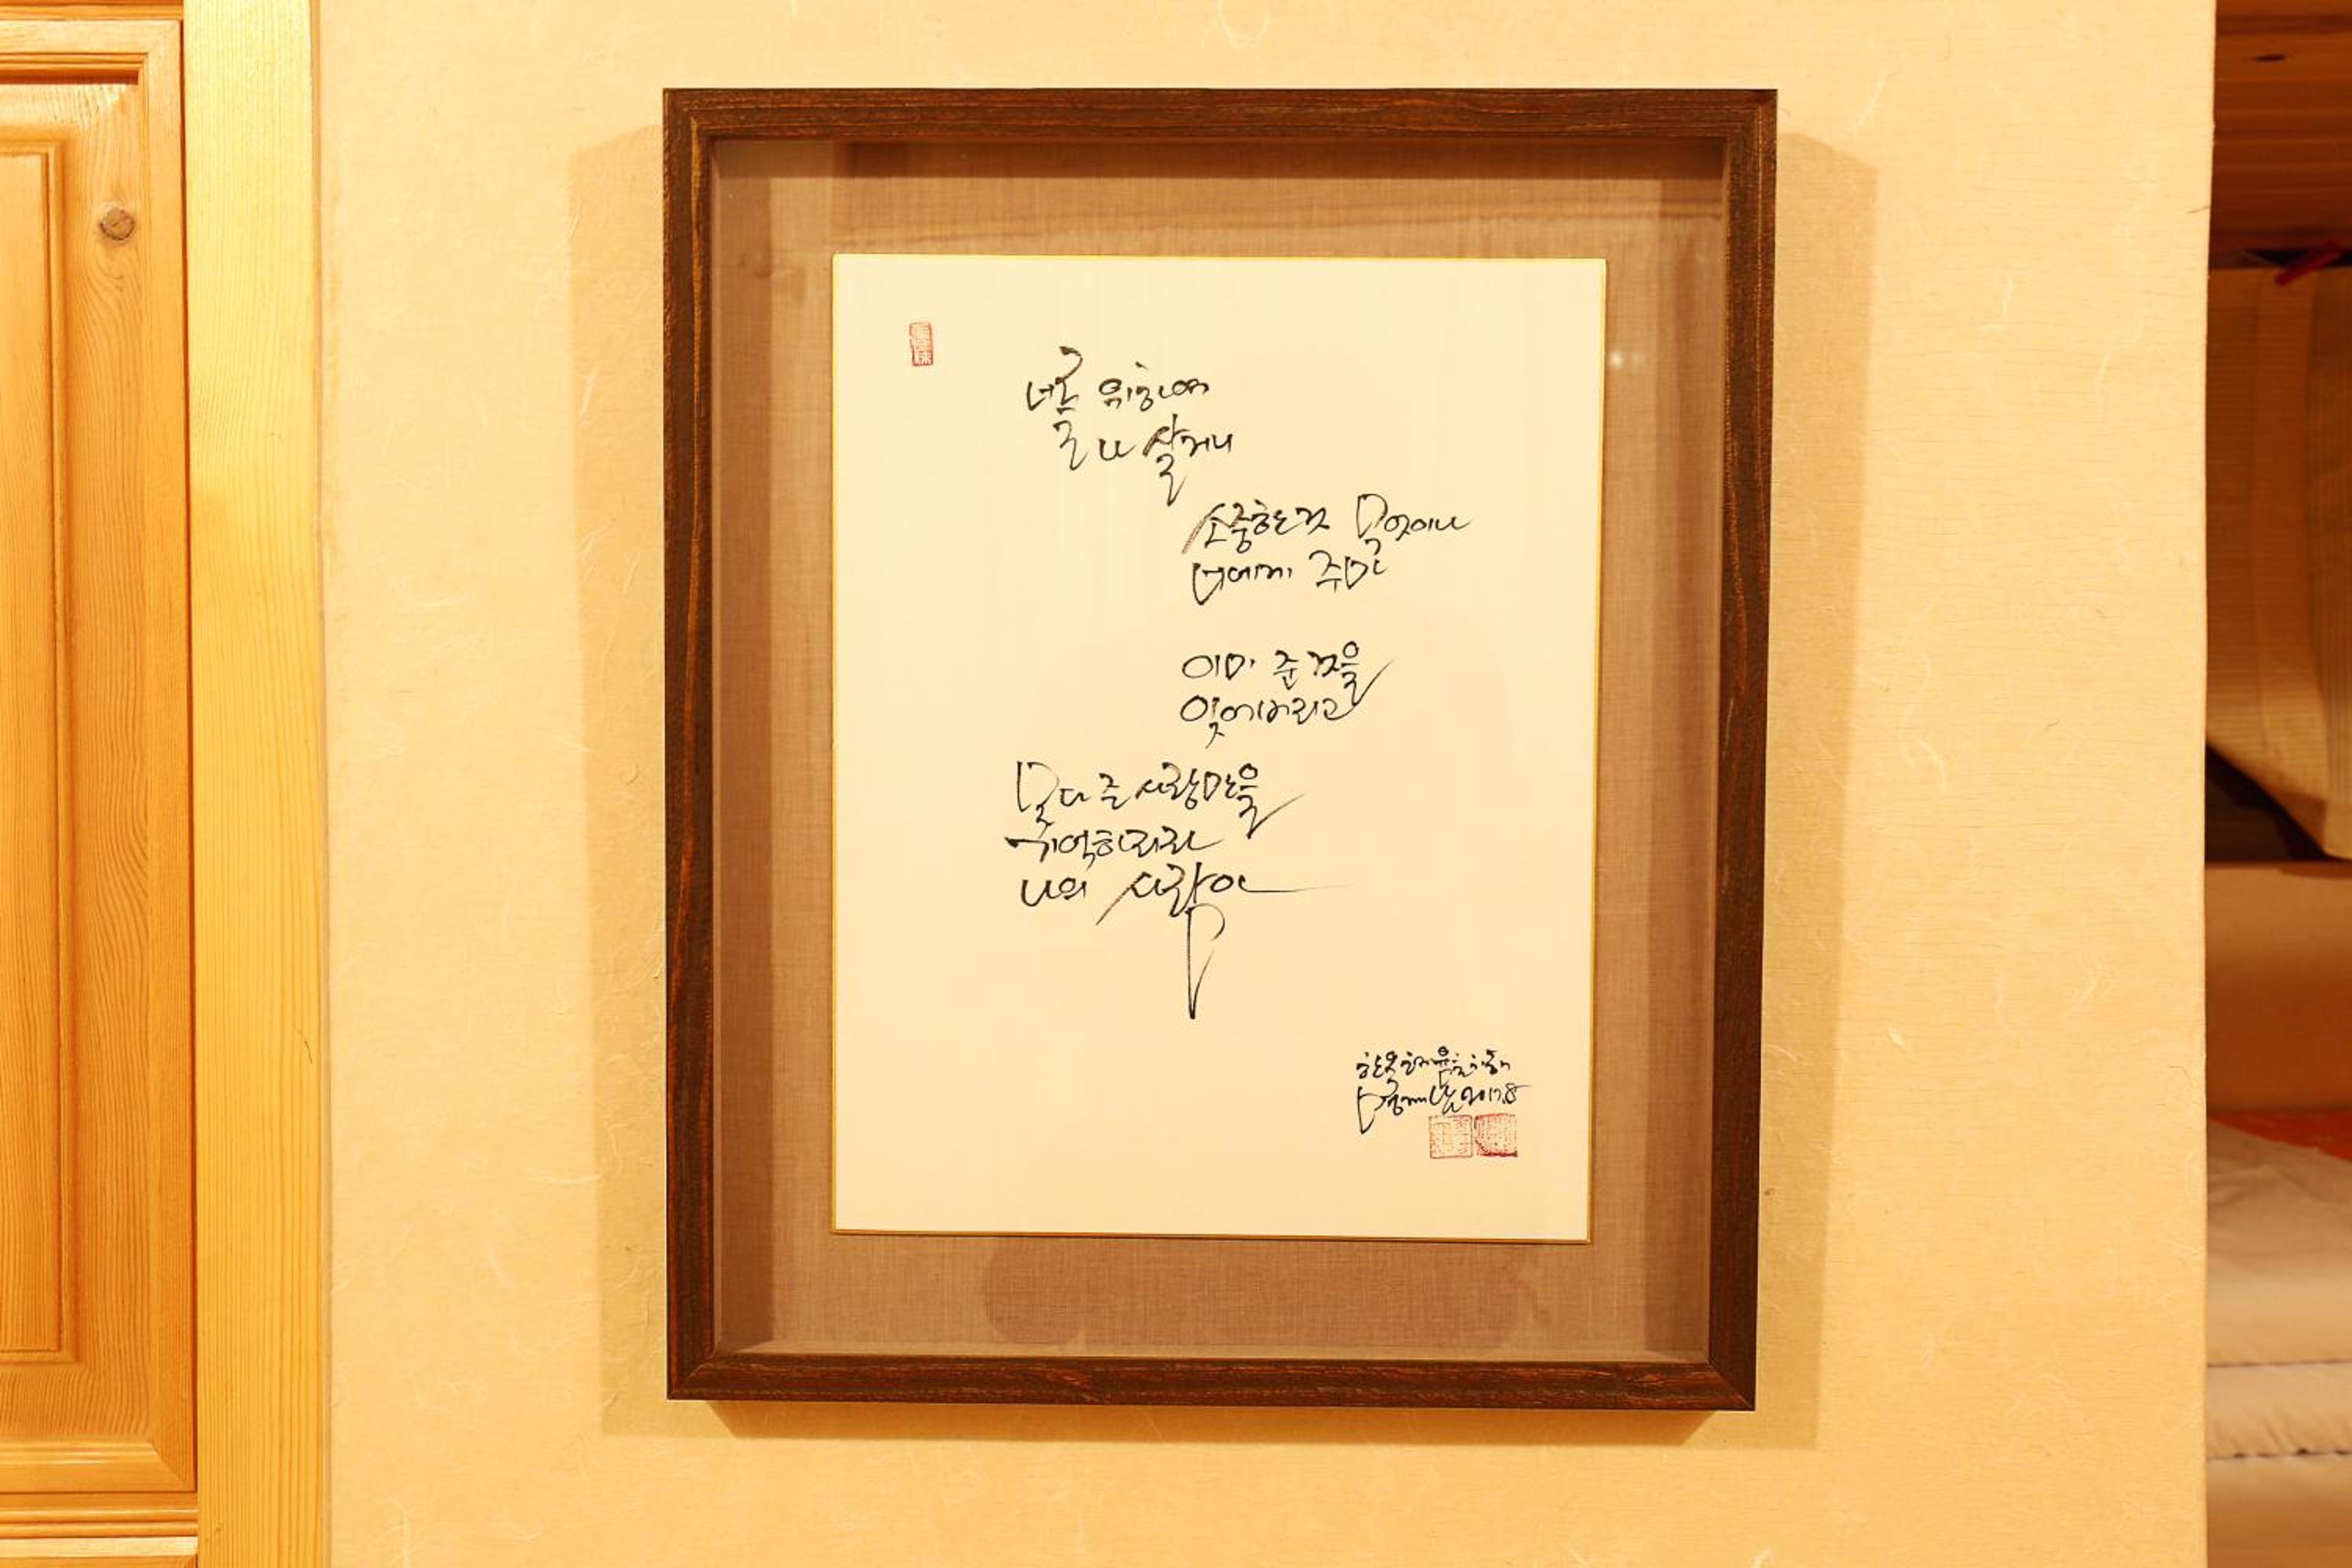 너를 위하여
나 살거니
소중한것 무엇이나
너에게 주마
이미 준 것을
잊어버리고
못다 준 사랑만을
기억하리라
나의 사랑아
2017.8